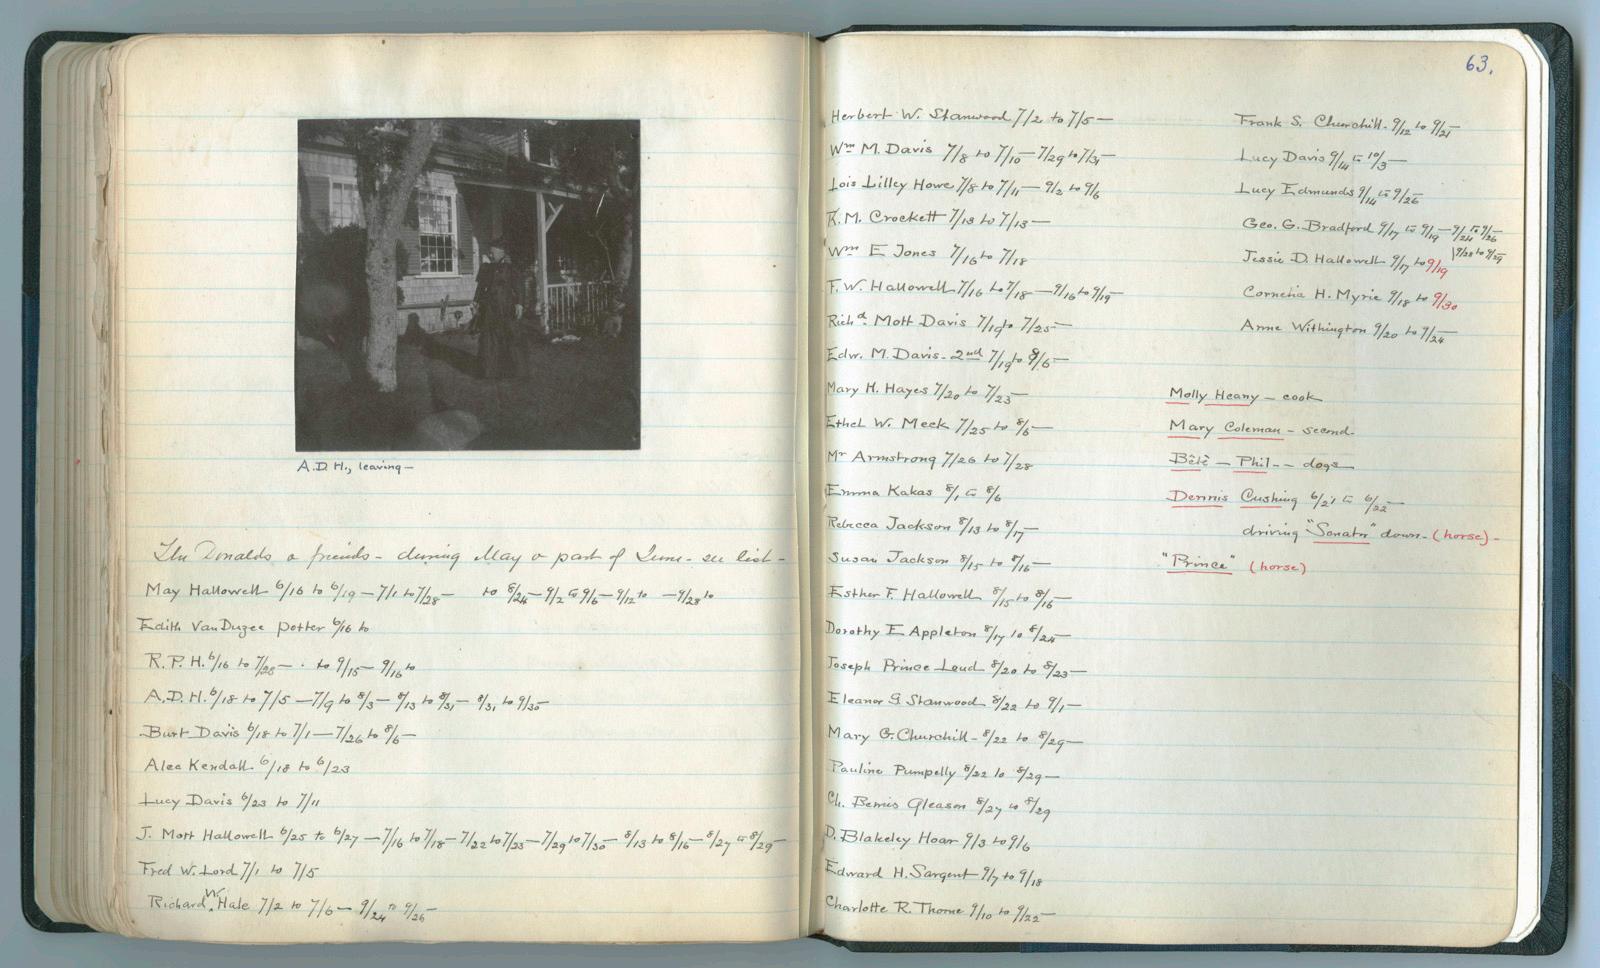 A.D.H., leaving—
The Donalds & friends - during May & part of June - see list -
May Hallowell 6/16 to 6/19 — 7/1 to 7/28 — to 8/24 — 9/2 to 9/6 — 9/12 to — 9/28 to
Edith VanDuzee Potter 6/16 to
R.P.H. 6/16 to 7/28 — · to 9/15 — 9/16 to
A.D.H. 6/18 to 7/5 — 7/9 to 8/3 — 8/13 to 8/31 — 8/31 to 9/30 —
Burt Davis 6/18 to 7/1 — 7/26 to 8/6 —
Alec Kendall 6/18 to 6/23
Lucy Davis 6/23 to 7/11
J. Mott Hallowell 6/25 to 6/27 — 7/16 to 7/18 — 7/22 to 7/23 — 7/29 to 7/30 — 8/13 to 8/16 — 8/27 to 8/29 —
Fred W. Lord 7/1 to 7/5
Richard W. Hale 7/2 to 7/6 — 9/24 to 9/26 —
63.
Herbert W. Stanwood 7/2 to 7/5 —
Wm M. Davis 7/8 to 7/10 — 7/29 to 7/31 —
Lois Lilley Howe 7/8 to 7/11 — 9/2 to 9/6
R. M. Crockett 7/13 to 7/13 —
Wm E Jones 7/16 to 7/18
F. W. Hallowell 7/16 to 7/18 — 9/16 to 9/19 —
Richd Mott Davis 7/19 to 7/25 —
Edw. M. Davis - 2nd 7/19 to 8/6 —
Mary H. Hayes 7/20 to 7/23 —
Ethel W. Meek 7/25 to 8/6 —
Mr Armstrong 7/26 to 7/28
Emma Kakas 8/1 to 8/6
Rebecca Jackson 8/13 to 8/17 —
Susan Jackson 8/15 to 8/16 —
Esther F. Hallowell 8/15 to 8/16 —
Dorothy E Appleton 8/17 to 8/24 —
Joseph Prince Loud 8/20 to 8/23 —
Eleanor G Stanwood 8/22 to 9/1 —
Mary G. Churchill - 8/22 to 8/29 —
Pauline Pumpelly 8/22 to 8/29 —
Ch. Bemis Gleason 8/27 to 8/29
D. Blakeley Hoar 9/3 to 9/6
Edward H. Sargent 9/7 to 9/18
Charlotte R. Thorne 9/10 to 9/22 —
Frank S. Churchill - 9/12 to 9/21 —
Lucy Davis 9/14 to 10/3 —
Lucy Edmunds 9/14 to 9/26
Geo. G. Bradford 9/17 to 9/19 — 9/24 to 9/26
9/28 to 9/29
Jessie D. Hallowell 9/17 to 9/19
Cornelia H. Myrie 9/18 to 9/30
Anne Withington 9/20 to 9/24
Molly Heany — cook
Mary Coleman - second -
Bêtê — Phil - - dogs —
Dennis Cushing 6/21 to 6/22 —
driving "Senator" down - (horse) -
"Prince" (horse)